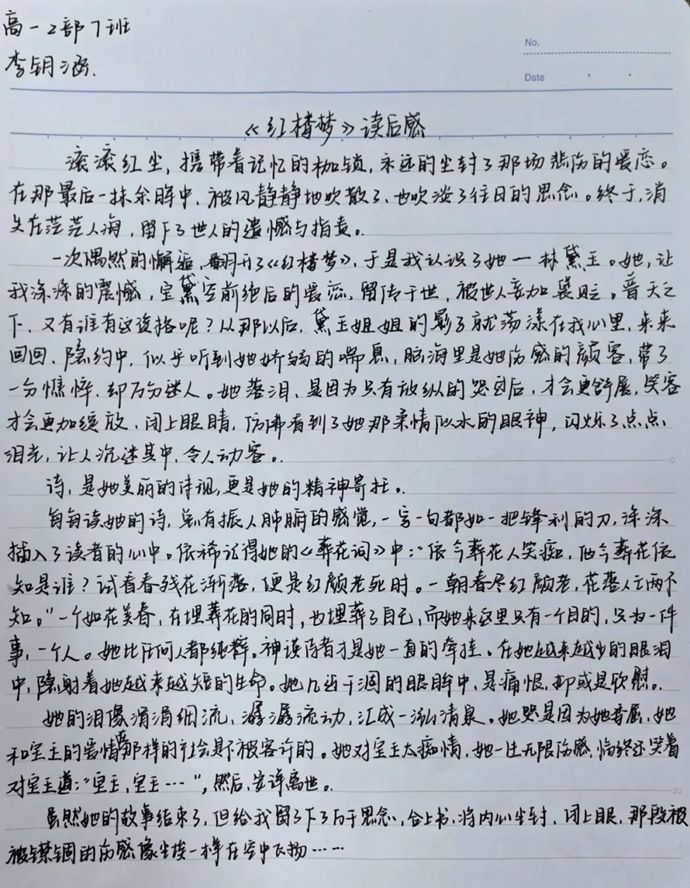 高一2部7班
李钥涵.
No.
Date
《红楼梦》读后感
滚滚红尘，携带着记忆的枷锁，永远的尘封了那场悲伤的爱恋。
在那最后一抹余晖中，被风静静地吹散了，也吹淡了往日的思念。终于，消
失在茫茫人海，留下了世人的遗憾与指责。
一次偶然的邂逅，翻开了《红楼梦》，于是我认识了她一林黛玉。她，让
我深深的震憾，宝黛空前绝后的爱恋，留传于世，被世人妄加褒贬。普天之
下，又有谁有这资格呢？从那以后，黛玉姐姐的影子就荡漾在我心里，来来
回回，隐约中，似乎听到她娇弱的喘息，脑海里是她伤感的颜容，带了
一分憔悴，却万分迷人。她落泪，是因为只有放纵的哭泣后，才会更舒展，笑容
才会更加绽放，闭上眼睛，仿佛看到了她那柔情似水的眼神，闪烁了点点
泪光，让人沉迷其中，令人动容。
诗，是她美丽的诗视，更是她的精神寄托。
每每读她的诗，总有振人肺腑的感觉，一言一句都如一把锋利的刀，深深
插入了读者的心中。依稀记得她的《葬花词》中：“侬今葬花人笑痴，他今葬花侬
知是谁？试看春残花渐落，便是红颜老死时。一朝春尽红颜老，花落人亡两不
知。”一个如花美眷，在埋葬花的同时，也埋葬了自己，而她来这里只有一个目的，只为一件
事，一个人。她比任何人都纯粹。神瑛侍者才是她一直的牵挂。在她越来越少的眼泪
中，隐射着她越来越短的生命。她几近干涸的眼眸中，是痛恨，抑或是欣慰。
她的泪像涓涓细流，潺潺流动，汇成一泓清泉。她哭是因为她委屈，她
和宝玉的爱情那样的社会是不被容许的。她对宝玉太痴情，她一生无限伤感，临终还哭着
对宝玉道：“宝玉，宝玉……”，然后，安详离世。
虽然她的故事结束了，但给我留了下了万千思念，合上书，将内心尘封，闭上眼，那段被
被禁锢的伤感像尘埃一样在空中飞扬……
10
20